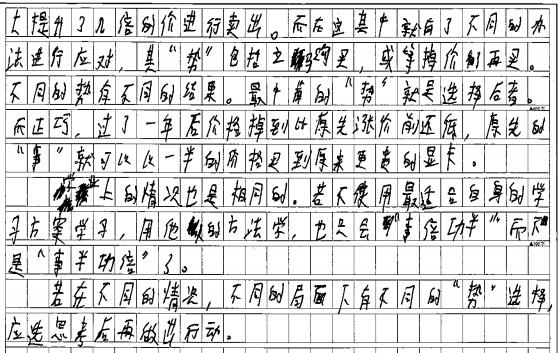 大提升了几倍的价进行卖出。而在这其中就有了不同的办
法进行应对，其“势”包括立购买，或等掉价的再买。
不同的势有不同的结果。最中肯的“势”就是选择后者。
而正巧，过了一年后价格掉到比原先涨价前还低，原先的
“事”就可以以一半的价格买到原来更贵的显卡。
学业上的情况也是相同的。若不使用最适合自身的学
习方案学习，用他的方法学，也只会“事倍功半”而不
是“事半功倍”了。
若在不同的情况，不同的局面下有不同的“势”选择，
应选思考后再做进行动。